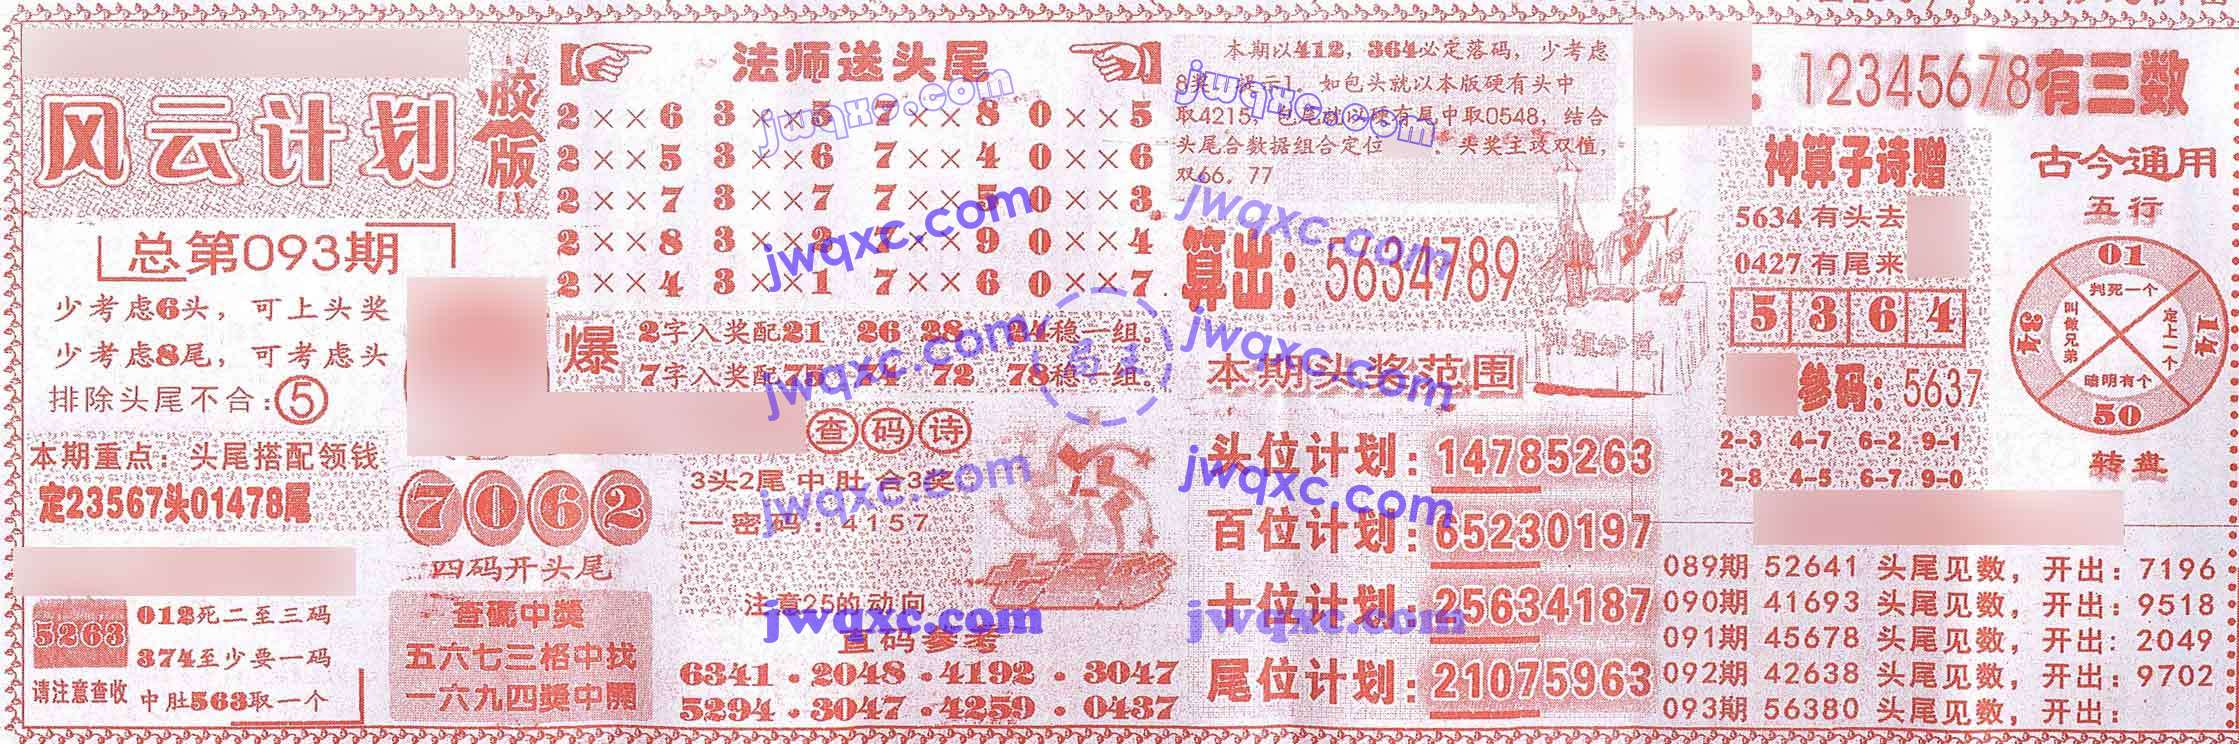 风云计划
胶版
总第093期
少考虑6头，可上头奖
少考虑8尾，可考虑头
排除头尾不合：⑤
本期重点：头尾搭配领钱
定23567头01478尾
5263
请注意查收
012死二至三码
374至少要一码
中肚563取一个
7062
四码开头尾
查码中奖
五六七三格中找
一六九四奖中開
法师送头尾
2××6 3××5 7××8 0××5
2××5 3××6 7××4 0××6
2××7 3××7 7××5 0××3
2××8 3×× 7××9 0××4
2××4 3××1 7××6 0××7
爆
2字入奖配21 26 28 24稳一组。
7字入奖配75 74 72 78稳一组。
查码诗
3头2尾中肚合3奖
一密码：4157
注意25的动向
查码参考
6341．2048．4192．3047
5294．3047．4259．0437
本期以412，364必定落码，少考虑
8奖，提示1，如包头就以本版硬有头中
取4215，包尾就以硬有尾中取0548，结合
头尾合数据组合定位、头奖主攻双值，
双66，77
算出：5634789
本期头奖范围
头位计划：14785263
百位计划：65230197
十位计划：25634187
尾位计划：21075963
：12345678有三数
神算子诗赠
5634有头去
0427有尾来
5 3 6 4
参码：5637
2-3 4-7 6-2 9-1
2-8 4-5 6-7 9-0
古今通用
五行
01
判死一个
34
叫做兄弟
定上一个
14
暗明有个
50
转盘
089期 52641 头尾见数，开出：7196
090期 41693 头尾见数，开出：9518
091期 45678 头尾见数，开出：2049
092期 42638 头尾见数，开出：9702
093期 56380 头尾见数，开出：
jwqxc.com
jwqxc.com
jwqxc.com
jwqxc.com
jwqxc.com
jwqxc.com
jwqxc.com
jwqxc.com
jwqxc.com
jwqxc.com